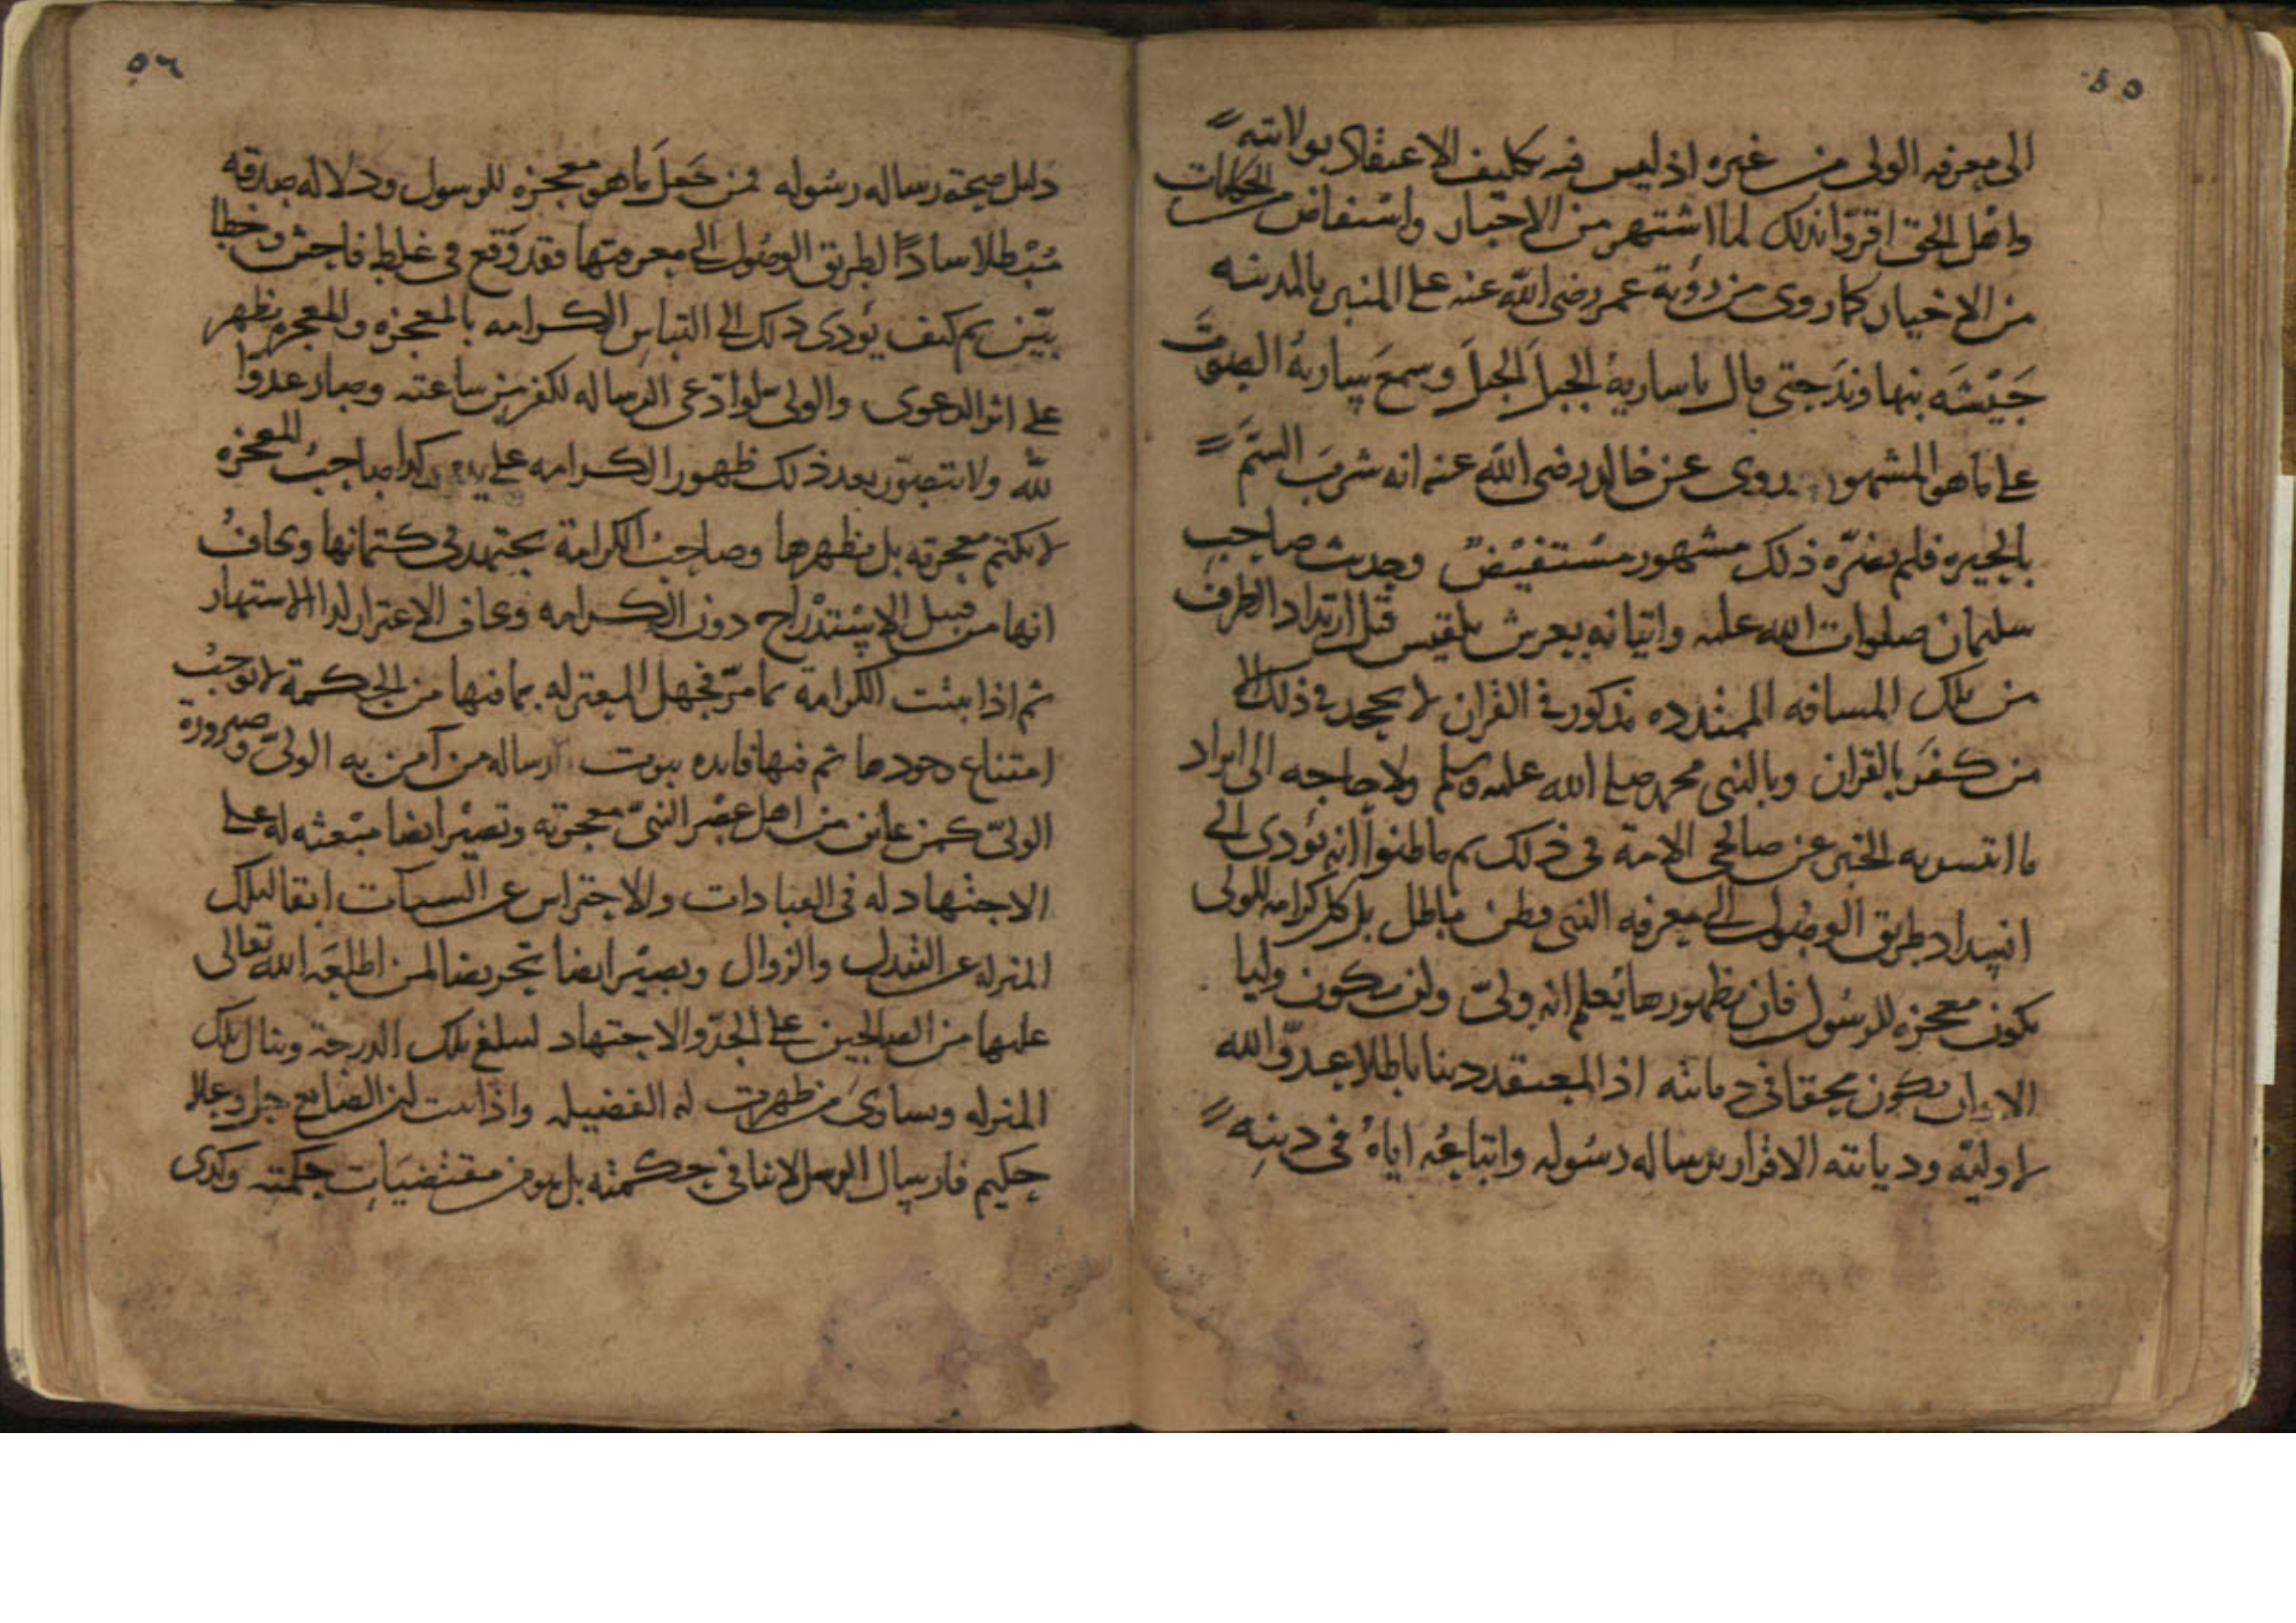 ٥٥
الى معرفه الولى من غيره اذ ليس فيه تكليف الاعتقاد بولايته
واهل الحق اقروا بذلك لما اشتهر من الاخبار واستفاض من الحكايات
من الاخيار كما روى من رؤية عمر رضى الله عنه على المنبر بالمدينه
جَيْشَه بنهاوند حتى قال يا ساريةُ الجبلَ الجبلَ وسمعَ ساريةُ الصوتَ
على ما هو المشهور وروى عن خالد رضى الله عنه انه شرِبَ السَّمَّ
بالحيره فلم يضرّه ذلك مشهور مستفيضٌ وحديث صاحب
سليمان صلوات الله عليه واتيانه بعرش بلقيس قبل ارتداد الطرف
من تلك المسافه الممتدده مذكور فى القران لا يجحد فى ذلك الا
من كفَر بالقران وبالنبى محمد صلى الله عليه وسلم ولا حاجه الى ايراد
ما انتشر به الخبر عن صالحى الامة فى ذلك ثم ما ظنوا انه يؤدى الى
انسداد طريق الوصُول الى معرفه النبى فظن باطل بل كل كرامه للولى
يكون معجزه للرسُول فان بظهورها يُعلم انه ولىّ ولن يكون وليا
الا وان يكون محقا فى ديانته اذ المعتقد دينا باطلا عدوّ الله
لا وليّه وديانته الاقرار برساله رسُوله واتباعُه اياهُ فى دينِه
٥٦
دليل صحة رساله رسُوله فمن جَعلَ ما هو معجزه للرسول ودلاله صدقه
مُبْطلا سادًا لطريق الوصُول الى معرفتها فقد وَقع فى غلط فاحش وخطا
بيّن ثم كيف يُؤدى ذلك الى التباس الكرامه بالمعجزه والمعجزه تظهر
على اثر الدعوى والولىّ لو ادّعى الرساله لكفر من ساعته وصار عدوا
للّه ولا يتصوّر بعد ذلك ظهور الكرامه على يده وكذا صاحبُ المعجزه
لا يكتم معجزته بل يظهرها وصاحبُ الكرامة يجتهد فى كتمانها ويخافُ
انها من قبيل الاسْتدْراج دون الكرامه ويخاف الاغترار لدا الاشتهار
ثم اذا ثبتت الكرامة بما مرّ فجهل المعتزله بما فيها من الحكمة لا يوجبُ
امتناع وجودها ثم فيها فايده ثبوت رساله من آمن به الولىّ وصيرورة
الولىّ كمن عاين من اهل عصْر النبىّ معجزته وتصيْر ايضا مبْعثه له على
الاجتهاد له فى العبادات والاحتراس عن السيآت ابقا لتلك
المنزله عن التبدل والزوال ويصيْر ايضا تحريضا لمن اطلعَه الله تعالى
عليها من الصالحين على الجدّ والاجتهاد ليبلغ تلك الدرجة وينال تلك
المنزله ويساوىَ من ظهرت له الفضيله واذا ثبت ان الصانع جل وعلا
حكيم فارسال الرسل لا ينافى حكمته بل هو من مقتضيَات حكمته وكذى